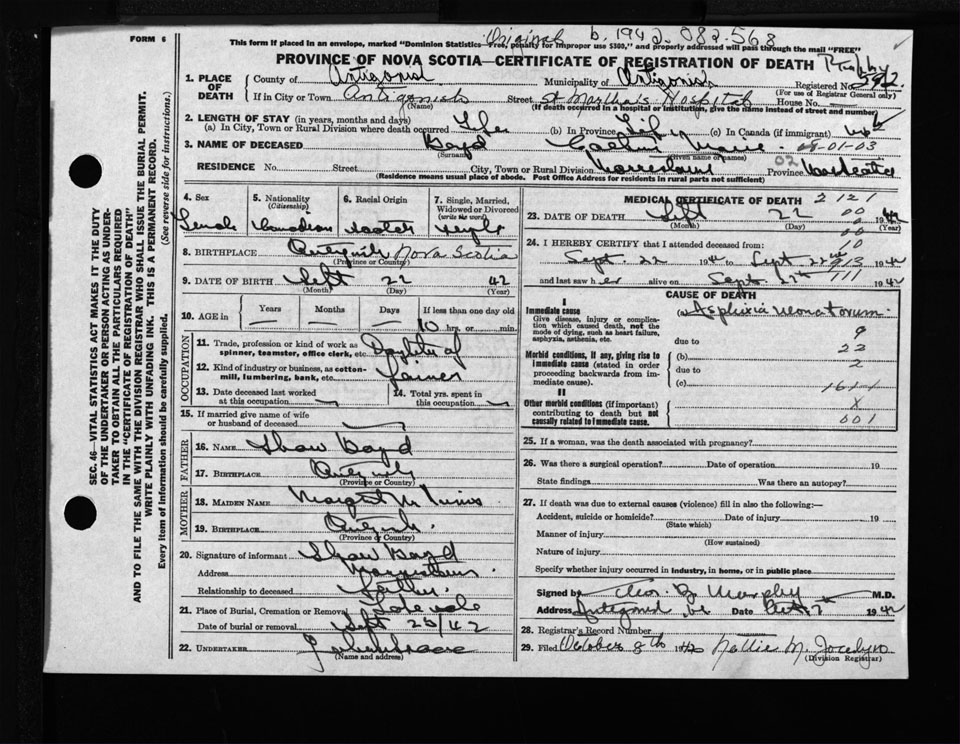 FORM 6
Original b. 1942. 082-568
This form if placed in an envelope, marked "Dominion Statistics—Free, penalty for improper use $300," and properly addressed will pass through the mail "FREE"
PROVINCE OF NOVA SCOTIA—CERTIFICATE OF REGISTRATION OF DEATH
1. PLACE OF DEATH
County of Antigonish
Municipality of Antigonish
Registered No.
(For use of Registrar General only)
If in City or Town Antigonish
(Name)
Street St Martha's Hospital House No.
(If death occurred in a hospital or institution, give the name instead of street and number)
2. LENGTH OF STAY (in years, months and days)
(a) In City, Town or Rural Division where death occurred Life (b) In Province Life (c) In Canada (if immigrant)
3. NAME OF DECEASED Boyd Marie 08-01-03
(Surname) (Given name or names)
RESIDENCE No. Street City, Town or Rural Division 02 Province Nova Scotia
(Residence means usual place of abode. Post Office Address for residents in rural parts not sufficient)
4. Sex Female
5. Nationality (Citizenship) Canadian
6. Racial Origin Scotch
7. Single, Married, Widowed or Divorced (write the word) Single
8. BIRTHPLACE Antigonish Nova Scotia
(Province or Country)
9. DATE OF BIRTH Sept 22 42
(Month) (Day) (Year)
10. AGE in Years Months Days If less than one day old
10 hrs. or min.
OCCUPATION
11. Trade, profession or kind of work as spinner, teamster, office clerk, etc. Daughter of
12. Kind of industry or business, as cotton-mill, lumbering, bank, etc. Farmer
13. Date deceased last worked at this occupation
14. Total yrs. spent in this occupation
15. If married give name of wife or husband of deceased
FATHER
16. NAME Shaw Boyd
17. BIRTHPLACE Antigonish
(Province or Country)
MOTHER
18. MAIDEN NAME Margaret M
19. BIRTHPLACE Antigonish
(Province or Country)
20. Signature of informant Shaw Boyd
Address
Relationship to deceased Father
21. Place of Burial, Cremation or Removal
Date of burial or removal Sept 23/42
22. UNDERTAKER
(Name and address)
MEDICAL CERTIFICATE OF DEATH 2 121
23. DATE OF DEATH Sept 22 1942
(Month) (Day) (Year)
00
00
10
24. I HEREBY CERTIFY that I attended deceased from:
Sept. 22 1942 to Sept 22nd 1942
and last saw her alive on Sept. 1942
CAUSE OF DEATH
I
Immediate cause
Give disease, injury or complication which caused death, not the mode of dying, such as heart failure, asphyxia, asthenia, etc.
(a) Asphyxia Neonatorum
due to
9
23
Morbid conditions, if any, giving rise to immediate cause (stated in order proceeding backwards from immediate cause).
(b)
2
due to
(c)
II
Other morbid conditions (if important) contributing to death but not causally related to immediate cause.
X
001
25. If a woman, was the death associated with pregnancy?
26. Was there a surgical operation? Date of operation 19
State findings Was there an autopsy?
27. If death was due to external causes (violence) fill in also the following:—
Accident, suicide or homicide? Date of injury 19
(State which)
Manner of injury
(How sustained)
Nature of injury
Specify whether injury occurred in industry, in home, or in public place
Signed by Murphy M.D.
Address Antigonish Date Oct 7 1942
28. Registrar's Record Number
29. Filed October 8th 1942 Nellie M. Jocelyn
(Division Registrar)
SEC. 46—VITAL STATISTICS ACT MAKES IT THE DUTY
OF THE UNDERTAKER OR PERSON ACTING AS UNDERTAKER TO OBTAIN ALL THE PARTICULARS REQUIRED
IN THE "CERTIFICATE OF REGISTRATION OF DEATH"
AND TO FILE THE SAME WITH THE DIVISION REGISTRAR WHO SHALL ISSUE THE BURIAL PERMIT.
WRITE PLAINLY WITH UNFADING INK. THIS IS A PERMANENT RECORD.
Every item of information should be carefully supplied. (See reverse side for instructions.)